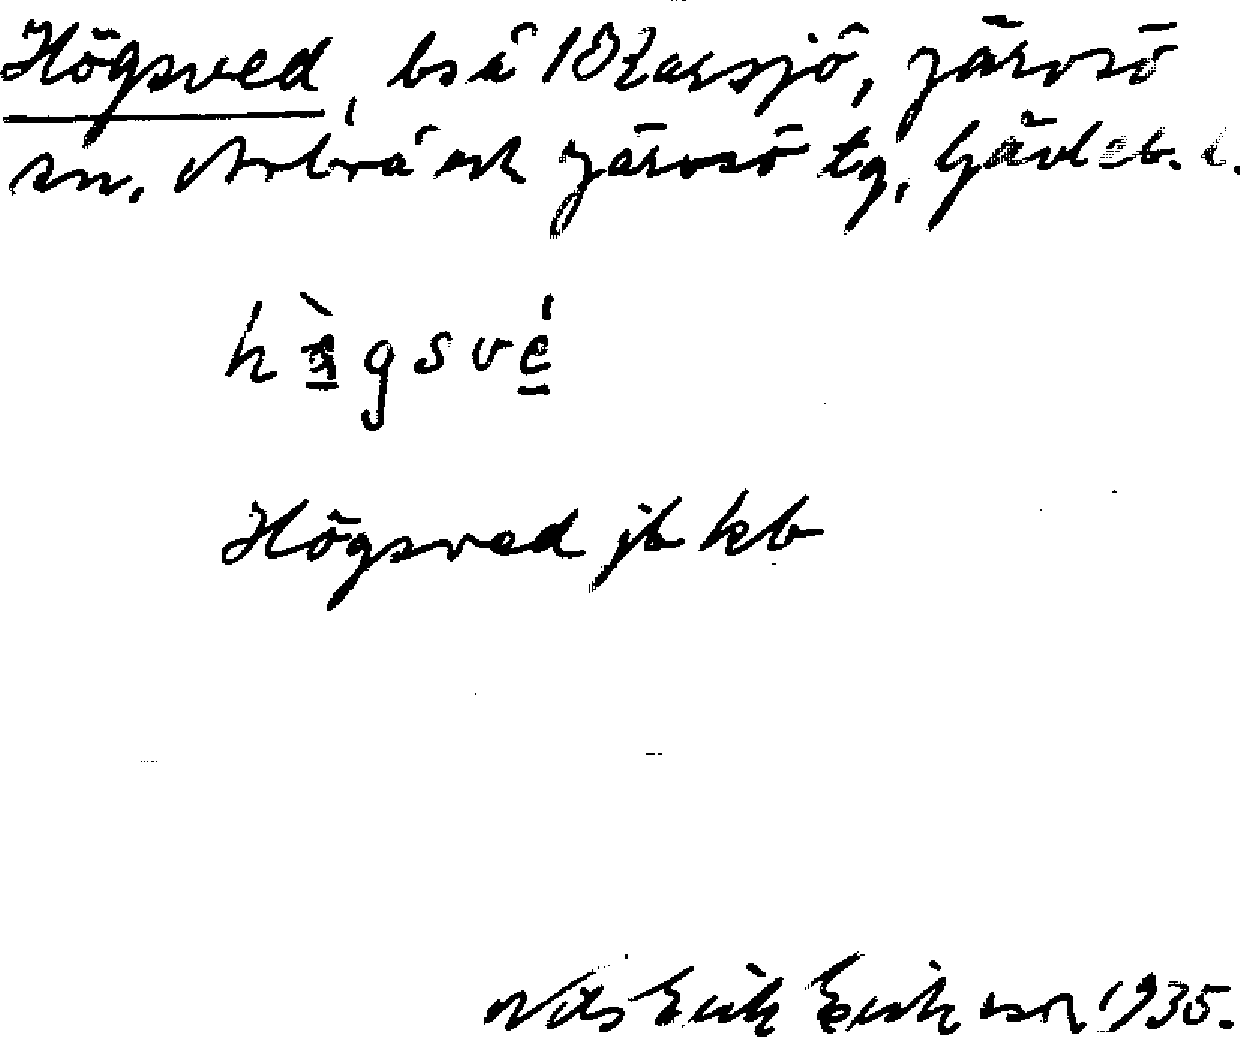 Högsved, bs å 1 Karsjö, Järvsö
sn, Arbrå och Järvsö tg, Gävleb. l.
Högsved jb kb
Nils Erik Eriksson 1935.